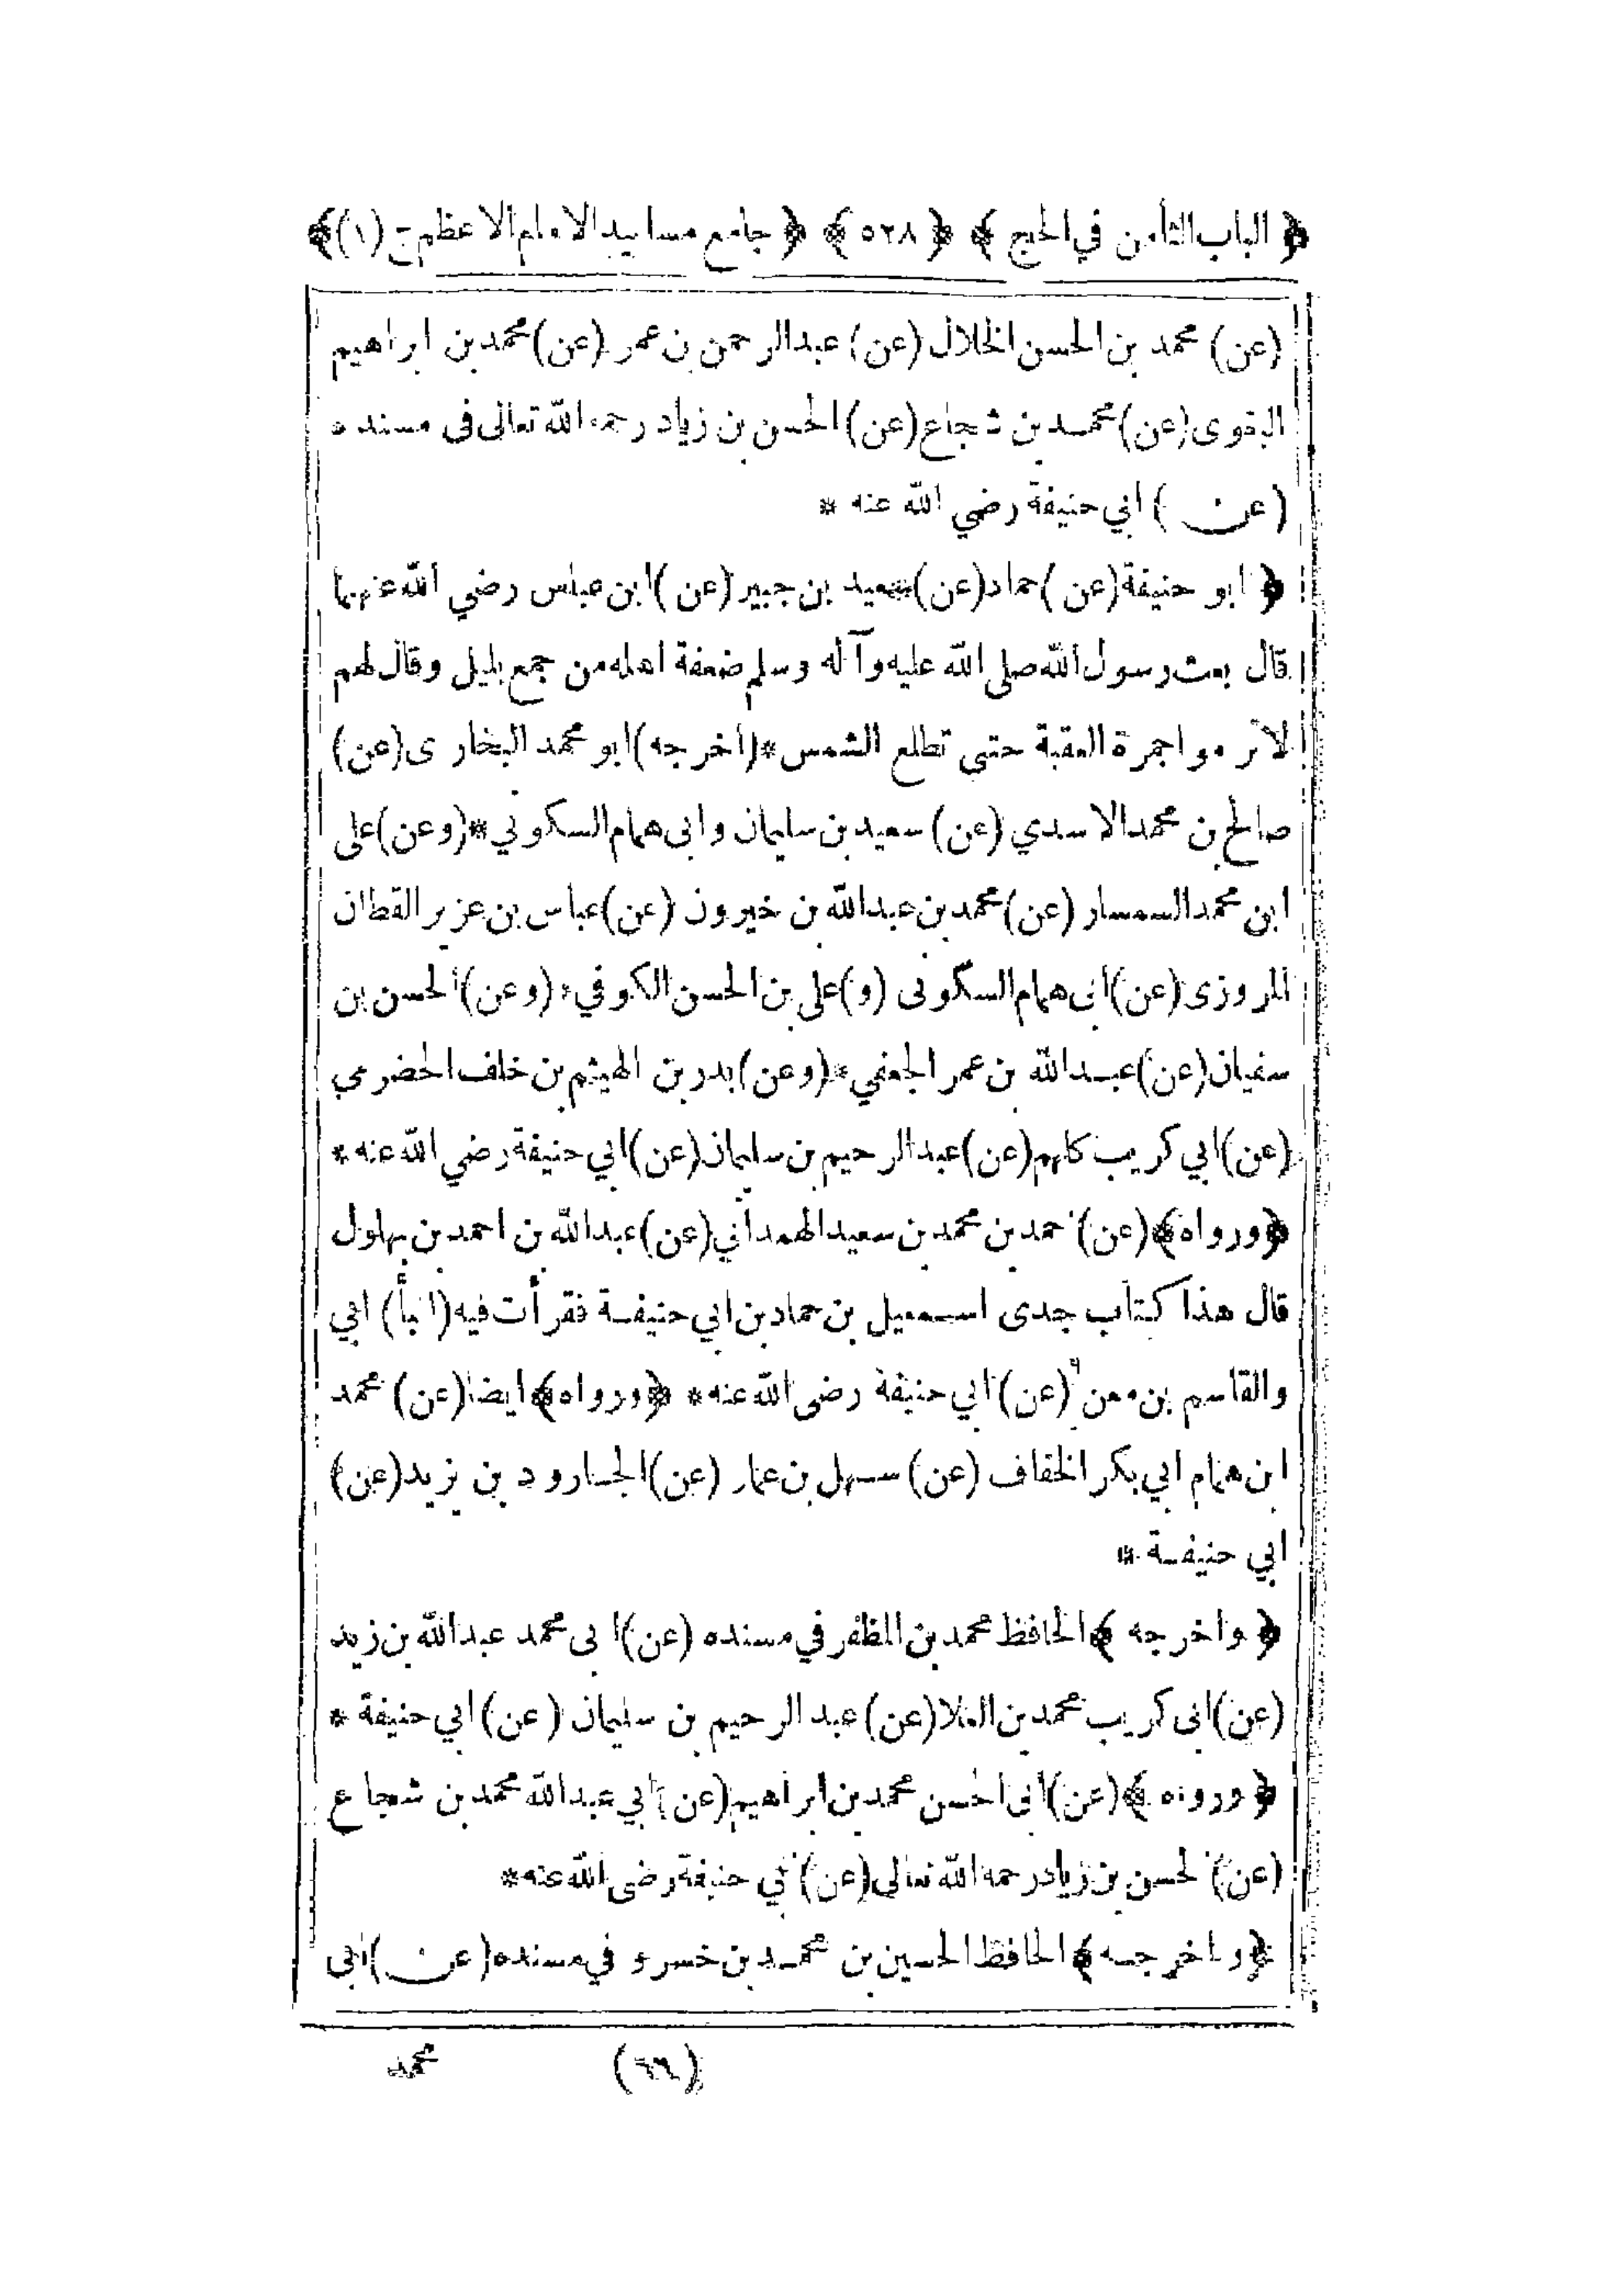 ﴿ الباب الثامن في الحج ﴾ ﴿ ٥٢٨ ﴾ ﴿ جامع مسانيد الامام الاعظم ج (١) ﴾
(عن) محمد بن الحسن الخلال (عن) عبد الرحمن بن عمر (عن) محمد بن ابراهيم
البغوى (عن) محمد بن شجاع (عن) الحسن بن زياد رحمه الله تعالى فى مسنده
(عن) ابي حنيفة رضي الله عنه *
﴿ ابو حنيفة (عن) حماد (عن) سعيد بن جبير (عن) ابن عباس رضي الله عنهما
قال بعث رسول الله صلى الله عليه وآله وسلم ضعفة اهله من جمع بليل وقال لهم
لا ترموا جمرة العقبة حتى تطلع الشمس * (اخرجه) ابو محمد البخارى (عن)
صالح بن محمد الاسدي (عن) سعيد بن سليمان وابى همام السكوني * (وعن) على
ابن محمد السمسار (عن) محمد بن عبد الله بن خيرون (عن) عباس بن عزير القطان
المروزى (عن) ابى همام السكونى (و) على بن الحسن الكوفي * (وعن) الحسن بن
سفيان (عن) عبد الله بن عمر الجعفي * (وعن) بدر بن الهيثم بن خلف الحضرمي
(عن) ابي كريب كلهم (عن) عبد الرحيم بن سليمان (عن) ابي حنيفة رضي الله عنه *
﴿ ورواه ﴾ (عن) احمد بن محمد بن سعيد الهمداني (عن) عبد الله بن احمد بن بهلول
قال هذا كتاب جدى اسمعيل بن حماد بن ابي حنيفة فقرأت فيه (انبأ) ابي
والقاسم بن معن (عن) ابي حنيفة رضى الله عنه * ﴿ ورواه ﴾ ايضا (عن) محمد
ابن همام ابي بكر الخفاف (عن) سهل بن عمار (عن) الجارود بن يزيد (عن)
ابي حنيفة *
﴿ واخرجه ﴾ الحافظ محمد بن المظفر في مسنده (عن) ابى محمد عبد الله بن زيد
(عن) ابى كريب محمد بن العلا (عن) عبد الرحيم بن سليمان (عن) ابي حنيفة *
﴿ ورواه ﴾ (عن) ابى الحسن محمد بن ابراهيم (عن) ابي عبد الله محمد بن شجاع
(عن) الحسن بن زياد رحمه الله تعالى (عن) ابي حنيفة رضى الله عنه *
﴿ واخرجه ﴾ الحافظ الحسين بن محمد بن خسرو في مسنده (عن) ابى
(٦٦) محمد